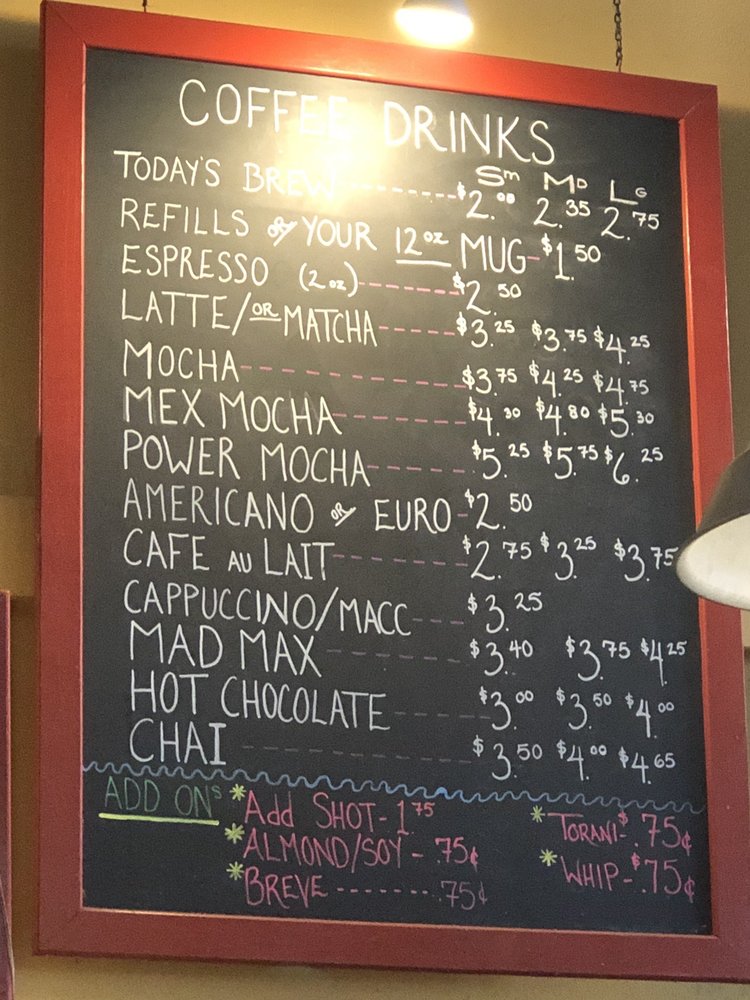 COFFEE DRINKS
Sm MD LG
TODAY'S BREW--------$2.00 2.35 2.75
REFILLS OF YOUR 12oz MUG-$1.50
ESPRESSO (2oz)-------$2.50
LATTE/OR MATCHA-----$3.25 $3.75 $4.25
MOCHA----------$3.75 $4.25 $4.75
MEX MOCHA------$4.30 $4.80 $5.30
POWER MOCHA-----$5.25 $5.75 $6.25
AMERICANO OR EURO-$2.50
CAFE AU LAIT-------$2.75 $3.25 $3.75
CAPPUCCINO/MACC---$3.25
MAD MAX-------$3.40 $3.75 $4.25
HOT CHOCOLATE-----$3.00 $3.50 $4.00
CHAI----------$3.50 $4.00 $4.65
ADD ONs *Add SHOT-1.75 *TORANI-$.75¢
*ALMOND/SOY-.75¢ *WHIP-$.75¢
*BREVE--------.75¢